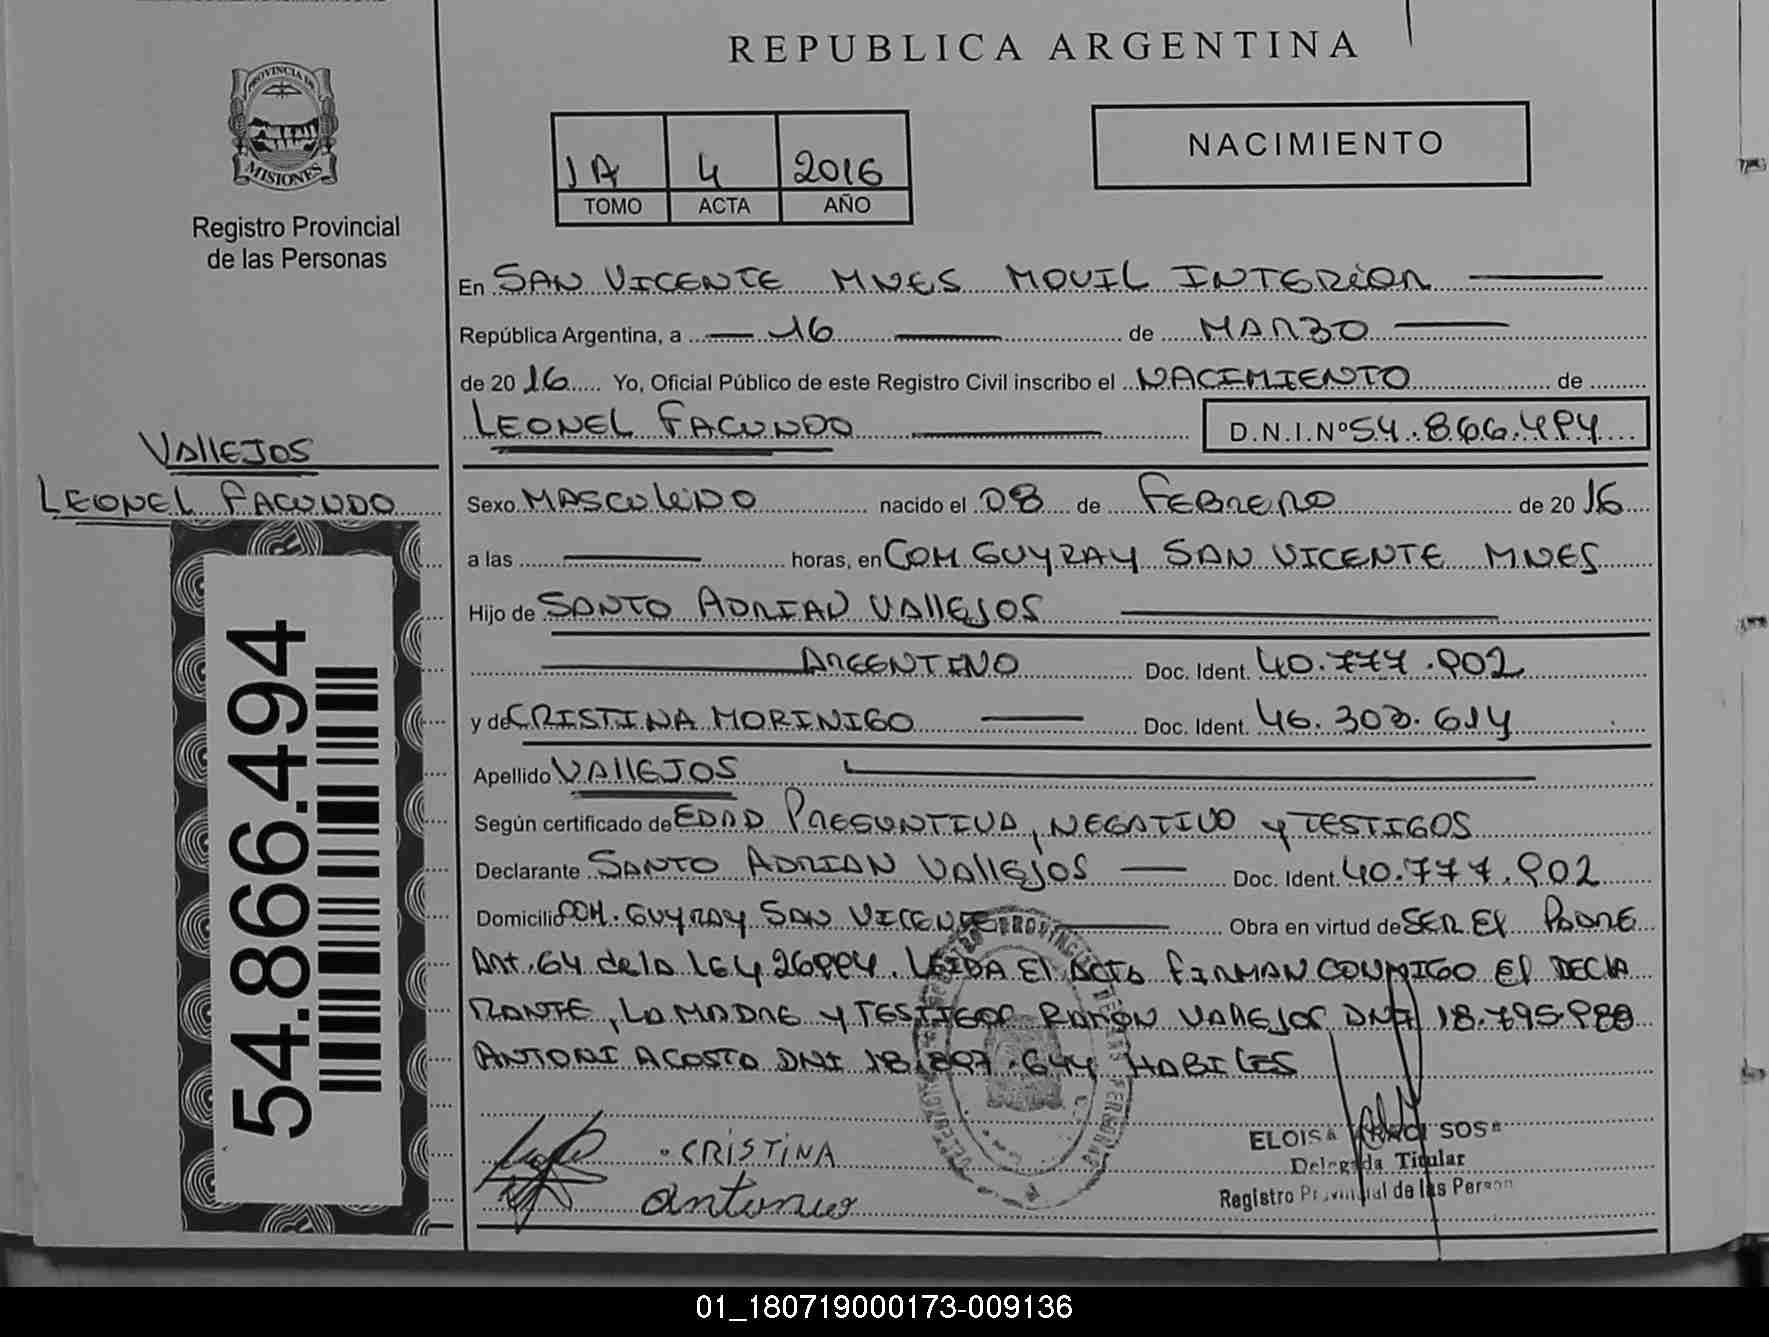 REPUBLICA ARGENTINA
PROVINCIA DE
MISIONES
Registro Provincial
de las Personas
1A 4 2016
TOMO ACTA AÑO
NACIMIENTO
En SAN VICENTE MNES MOVIL INTERIOR
República Argentina, a 16 de MARZO
de 2016 Yo, Oficial Público de este Registro Civil inscribo el NACIMIENTO de
LEONEL FACUNDO D.N.I.Nº 54.866.494
VALLEJOS
LEONEL FACUNDO
54.866.494
Sexo MASCULINO nacido el 08 de FEBRERO de 2016
a las horas, en COM GUYRAY SAN VICENTE MNES
Hijo de SANTO ADRIAN VALLEJOS
ARGENTINO Doc. Ident. 40.777.902
y de CRISTINA MORINIGO Doc. Ident. 46.303.614
Apellido VALLEJOS
Según certificado de EDAD PRESUNTIVA, NEGATIVO y TESTIGOS
Declarante SANTO ADRIAN VALLEJOS Doc. Ident. 40.777.902
Domicilio COM. GUYRAY SAN VICENTE Obra en virtud de SER El PADRE
Art. 64 de la lEy 26994. LEIDA El ACTA FIRMAN CONMIGO El DECLA
RANTE, LA MADRE y TESTIGOS RAMON VALLEJOS DNI 18.795.988
ANTONI ACOSTA DNI 18.897.644 HABILES
CRISTINA
antonio
ELOISA SOSA
Delegada Titular
Registro Provincial de las Person
01_180719000173-009136